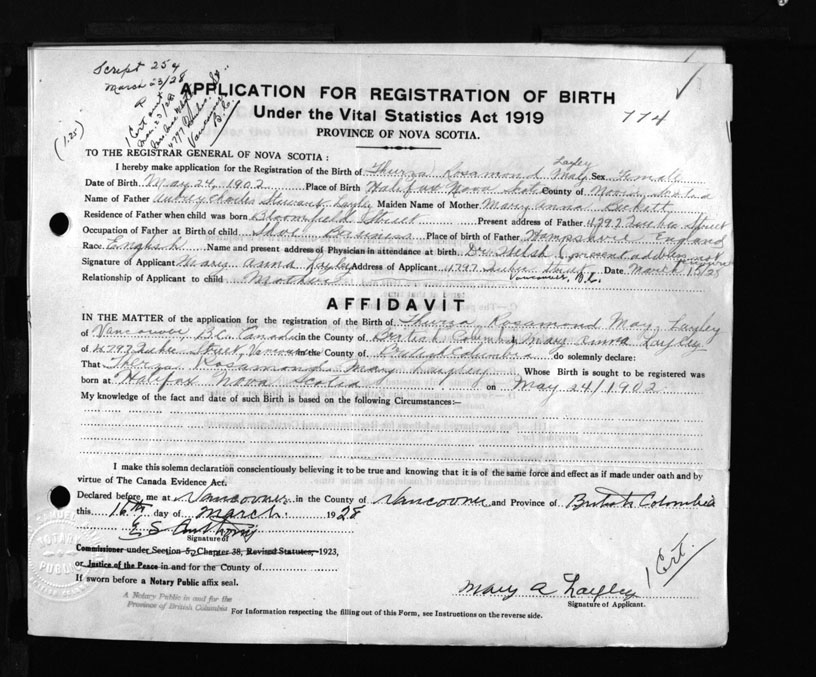 Script 254
March 23/28
(1.25)
APPLICATION FOR REGISTRATION OF BIRTH
Under the Vital Statistics Act 1919
114
PROVINCE OF NOVA SCOTIA.
TO THE REGISTRAR GENERAL OF NOVA SCOTIA:
Layley
I hereby make application for the Registration of the Birth of Thurza Rosamond May Sex Female
Date of Birth May 24, 1902 Place of Birth Halifax Nova Scot County of Nova Scotia
Name of Father Aubrey Charles Stewart Layley Maiden Name of Mother Mary Anna Beckett
Residence of Father when child was born Bloomfield Street Present address of Father 4797 Street
Occupation of Father at Birth of child Shoe Business Place of birth of Father Hampshire England
Race English Name and present address of Physician in attendance at birth Dr. Walsh (present address not
Signature of Applicant Mary Anna Layley Address of Applicant 4797 Street Date March 15/28
Vancouver, B.C.
Relationship of Applicant to child Mother
AFFIDAVIT
IN THE MATTER of the application for the registration of the Birth of Thurza Rosamond May Layley
of Vancouver B.C. Canada in the County of British Columbia Mary Anna Layley
of 4797 Street, the County of British Columbia do solemnly declare:
That Rosamond May Layley Whose Birth is sought to be registered was
born at Halifax Nova Scotia on May 24/1902
My knowledge of the fact and date of such Birth is based on the following Circumstances:—
I make this solemn declaration conscientiously believing it to be true and knowing that it is of the same force and effect as if made under oath and by
virtue of The Canada Evidence Act.
Declared before me at Vancouver in the County of Vancouver and Province of British Columbia
this 16th day of March 1928
E S Anthony
Signature of
Commissioner under Section 52, Chapter 38, Revised Statutes, 1923,
or Justice of the Peace in and for the County of
If sworn before a Notary Public affix seal.
1 Cert.
Mary A Layley
Signature of Applicant.
A Notary Public in and for the
Province of British Columbia
For Information respecting the filling out of this Form, see Instructions on the reverse side.
NOTARY PUBLIC